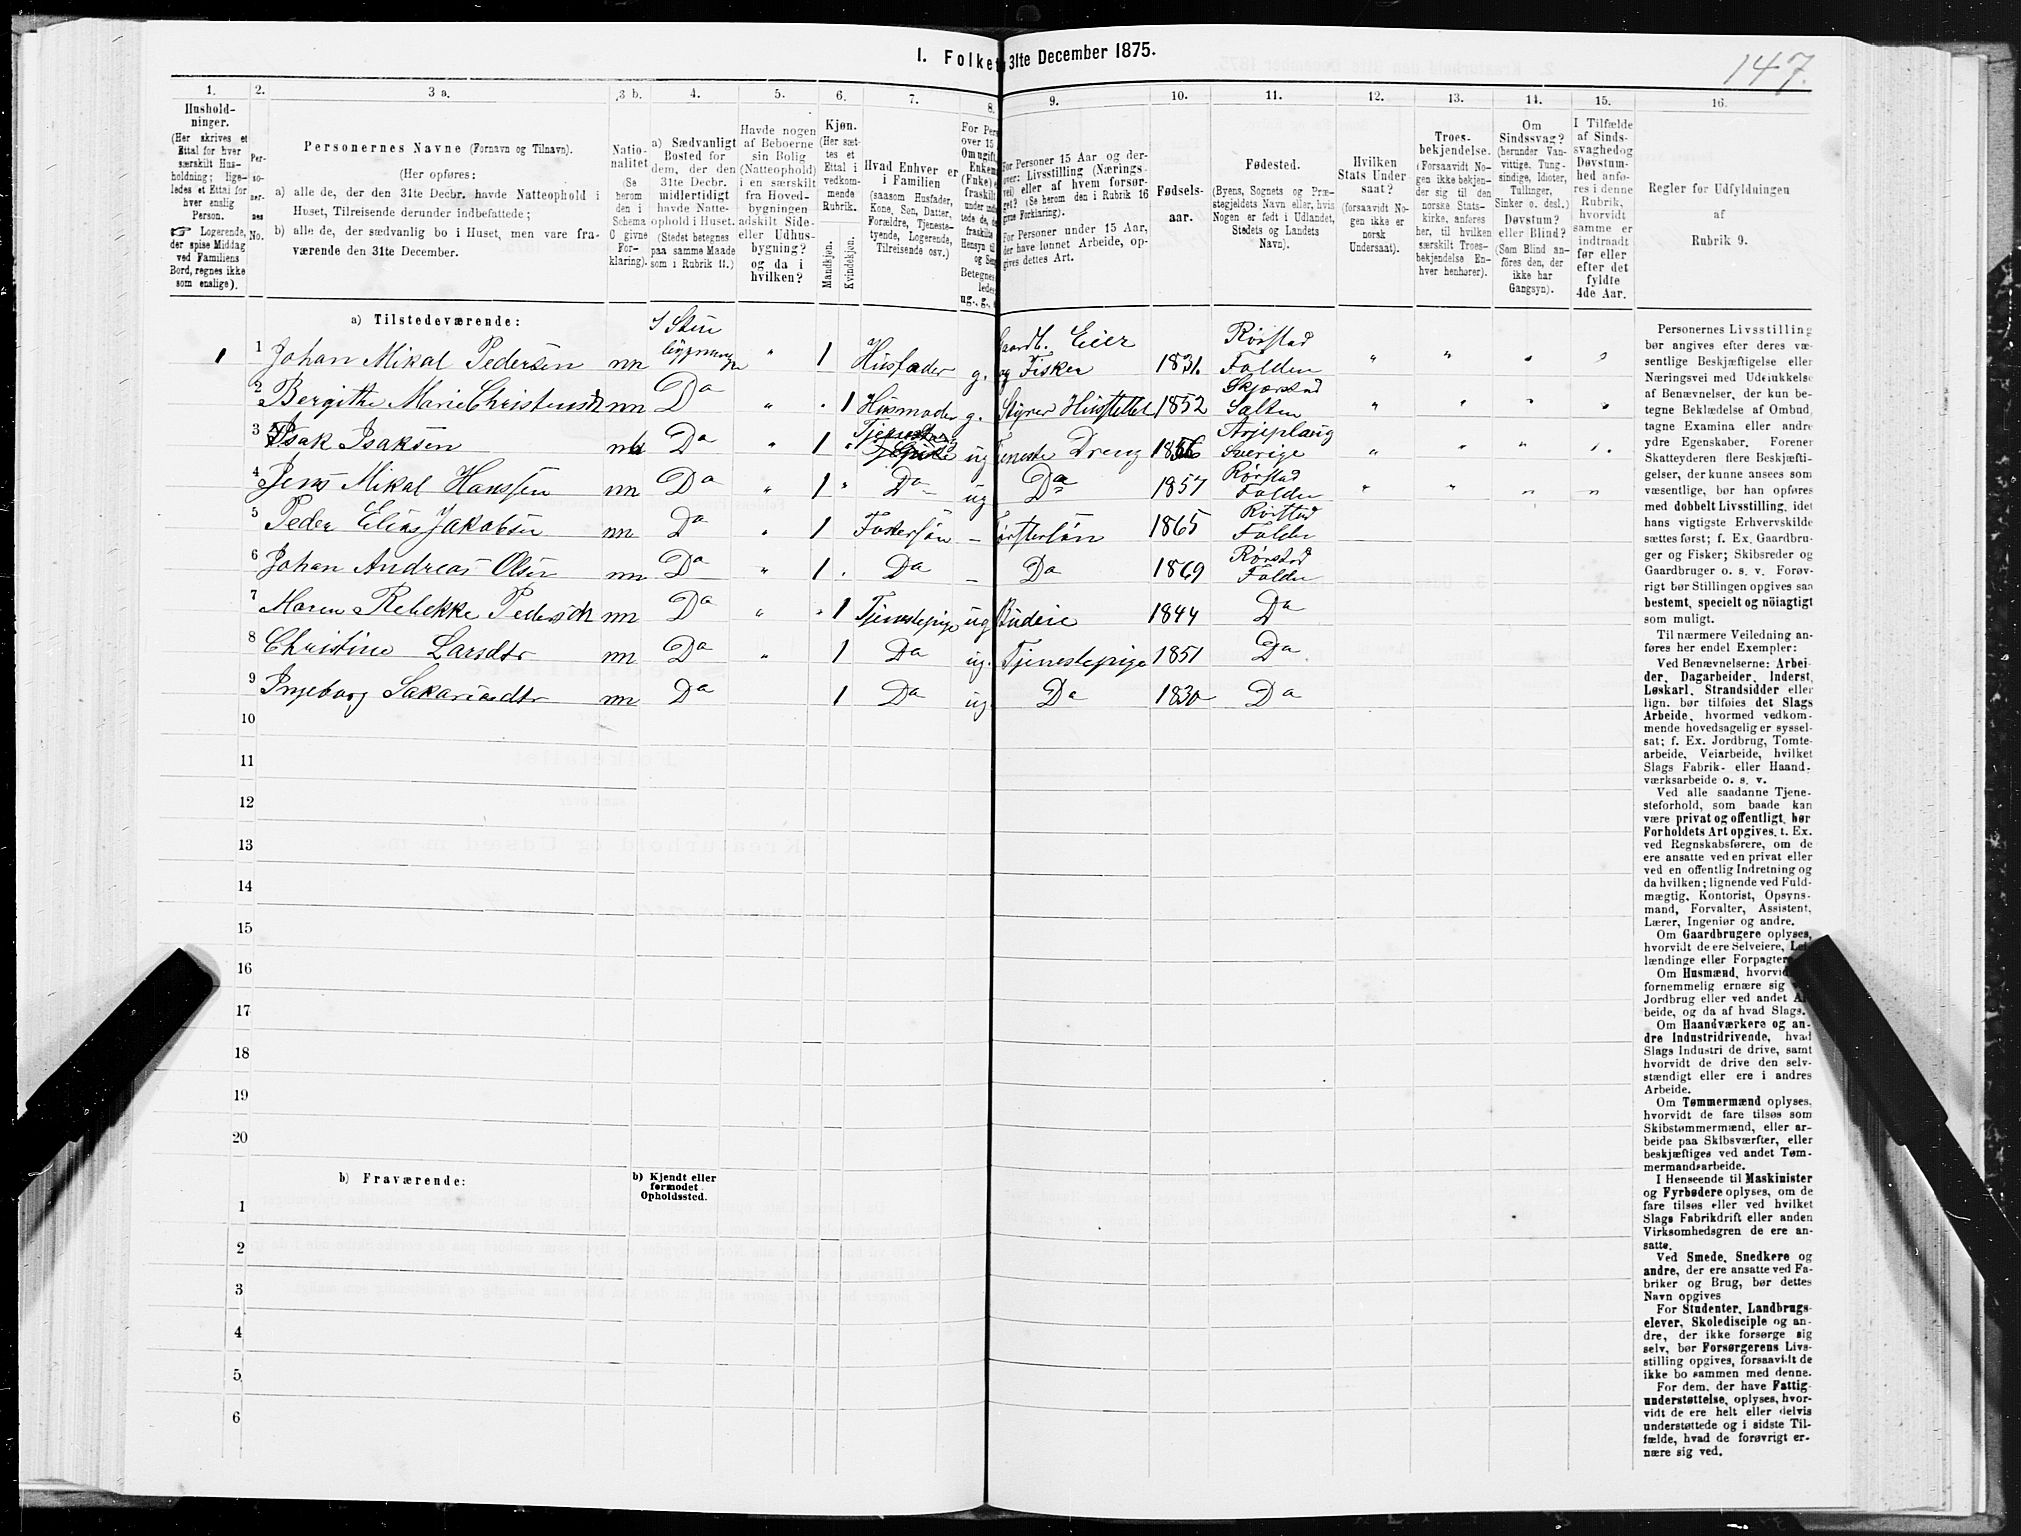 147.
I. Folket
31te December 1875.
1. 2. 3 a. 3 b. 4. 5. 6. 7. 8. 9. 10. 11. 12. 13. 14. 15. 16.
Hushold-
ninger.
(Her skrives et
Ettal for hver
særskilt Hus-
holdning; lige-
ledes et Ettal for
hver enslig
Person.
☞ Logerende,
der spise Middag
ved Familiens
Bord, regnes ikke
som enslige).
Per-
so-
ner-
nes
No.
Personernes Navne (Fornavn og Tilnavn).
(Her opføres:
a) alle de, der den 31te Decbr. havde Natteophold i
Huset, Tilreisende derunder indbefattede;
b) alle de, der sædvanlig bo i Huset, men vare fra-
værende den 31te December.
Natio-
nalitet
(Se
herom
den i
Schema
O givne
For-
klaring).
a) Sædvanligt
Bosted for
dem, der den
31te Decbr.
midlertidigt
havde Natte-
ophold i Huset.
(Stedet betegnes
paa samme Maade
som i Rubrik 11.)
Havde nogen
af Beboerne
sin Bolig
(Natteophold)
i en særskilt
fra Hoved-
bygningen
adskilt Side-
eller Udhus-
bygning?
og da i
hvilken?
Kjøn.
(Her sæt-
tes et
Ettal i
vedkom-
mende
Rubrik.
Mandkjøn.
Kvindekjøn.
Hvad Enhver er
i Familien
(saasom Husfader,
Kone, Søn, Datter,
Forældre, Tjeneste-
tyende, Logerende,
Tilreisende osv.)
For Pers
over 15
Om ugift,
Enkem
(Fuke) e
fraskilt
under indb
tede de, de
fraskilte
Hensyn til
og Sen
Betegnes
ledes
ug., g.,
For Personer 15 Aar og der-
over: Livsstilling (Nærings-
vei) eller af hvem forsør-
get? (Se herom den i Rubrik 16
givne Forklaring).
For Personer under 15 Aar,
der have lønnet Arbeide, op-
gives dettes Art.
Fødsels-
aar.
Fødested.
(Byens, Sognets og Præ-
stegjeldets Navn eller, hvis
Nogen er født i Udlandet,
Stedets og Landets
Navn).
Hvilken
Stats Under-
saat?
(forsaavidt No-
gen ikke er
norsk
Undersaat).
Troes-
bekjendelse.
(Forsaavidt No-
gen ikke bekjen-
der sig til den
norske Stats-
kirke, anføres
her, til hvilken
særskilt Troes-
bekjendelse En-
hver henhører).
Om
Sindssvag?
(herunder Van-
vittige, Tung-
sindige, Idioter,
Tullinger,
Sinker o. desl.)
Døvstum?
eller Blind?
(Som Blind an-
føres den, der
ikke har
Gangsyn).
I Tilfælde
af Sinds-
svaghed og
Døvstum-
hed anfø-
res i denne
Rubrik,
hvorvidt
samme er
indtraadt
før eller
efter det
fyldte
4de Aar.
Regler for Udfyldningen
af
Rubrik 9.
a) Tilstedeværende:
1 1 Johan Mikal Pedersen nn " 1 Husfader g. Gaardb. Eier og Fisker 1831 Rørstad Folden " " " "
2 Bergithe Marie Christensdtr nn Do " " 1 Husmoder g. Styrer Husstellet 1852 Skjerstad Salten " " " "
3 Isak Isaksen Do " 1 " ug Tjeneste Dreng Arjeplaug Sverige " " " "
4 Jens Mikal Hanssen nn Do " 1 " Do ug Do 1857 Rørstad Folden " " " "
5 Peder Elias Jakobsen nn Do " 1 Fostersøn – 1865 Rørstad Folden
6 Johan Andreas Olsen nn Do " 1 . Do – Do 1869 Rørstad Folden
7 Maren Rebekke Pedersdtr nn Do " " 1 Tjenestepige ug Budeie 1844 Do
8 Christine Larsdtr nn Do " 1 Do ug. Tjenestepige 1851 Do
9 Ingeborg Sakariasdtr nn Do 1 Do ug. Do 1830 Do
10
11
12
13
14
15
16
17
18
19
20
b) Fraværende:
b) Kjendt eller
formodet
Opholdssted.
1
2
3
4
5
6
Personernes Livsstilling
bør angives efter deres væ-
sentlige Beskjæftigelse eller
Næringsvei med Udelukkelse
af Benævnelser, der kun be-
tegne Beklædelse af Ombud,
tagne Examina eller andre
ydre Egenskaber. Forener
Skatteyderen flere Beskjæfti-
gelser, der kunne ansees som
væsentlige, bør han opføres
med dobbelt Livsstilling, idet
hans vigtigste Erhvervskilde
sættes først; f. Ex. Gaardbru-
ger og Fisker; Skibsreder og
Gaardbruger o. s. v. Forøv-
rigt bør Stillingen opgives saa
bestemt, specielt og nöiagtigt
som muligt.
Til nærmere Veiledning an-
føres her endel Exempler:
Ved Benævnelserne: Arbei-
der, Dagarbeider, Inderst,
Løskarl, Strandsidder eller
lign. bør tilføies det Slags
Arbeide, hvormed vedkom-
mende hovedsagelig er syssel-
sat; f. Ex. Jordbrug, Tomte-
arbeide, Veiarbeide, hvilket
Slags Fabrik- eller Haand-
værksarbeide o. s. v.
Ved alle saadanne Tjene-
steforhold, som baade kan
være privat og offentligt, bør
Forholdets Art opgives, t. Ex.
ved Regnskabsførere, om de
ere ansatte ved en privat eller
ved en offentlig Indretning og
da hvilken; lignende ved Fuld-
mægtig, Kontorist, Opsyns-
mand, Forvalter, Assistent,
Lærer, Ingeniør og andre.
Om Gaardbrugere oplyses,
hvorvidt de ere Selveiere, Lei-
lændinge eller Forpagtere.
Om Husmænd, hvorvidt
fornemmelig ernære sig
Jordbrug eller ved andet Ar-
beide, og da af hvad Slags.
Om Haandværkere og an-
dre Industridrivende, hvad
Slags Industri de drive, samt
hvorvidt de drive den selv-
stændigt eller ere i andres
Arbeide.
Om Tømmermænd oplyses,
hvorvidt de fare tilsøs som
Skibstømmermænd, eller ar-
beide paa Skibsværfter, eller
beskjæftiges ved andet Tøm-
mermandsarbeide.
I Henseende til Maskinister
og Fyrbødere oplyses, om de
fare tilsøs eller ved hvilket
Slags Fabrikdrift eller anden
Virksomhedsgren de ere an-
satte.
Ved Smede, Snedkere og
andre, der ere ansatte ved Fa-
briker og Brug, bør dettes
Navn opgives
For Studenter, Landbrugs-
elever, Skoledisciple og an-
dre, der ikke forsørge sig
selv, bør Forsørgerens Livs-
stilling opgives, forsaavidt de
ikke bo sammen med denne.
For dem, der have Fattig-
understøttelse, oplyses, hvor-
vidt de ere helt eller delvis
understøttede og i sidste Til-
fælde, hvad de forøvrigt er-
nære sig ved.